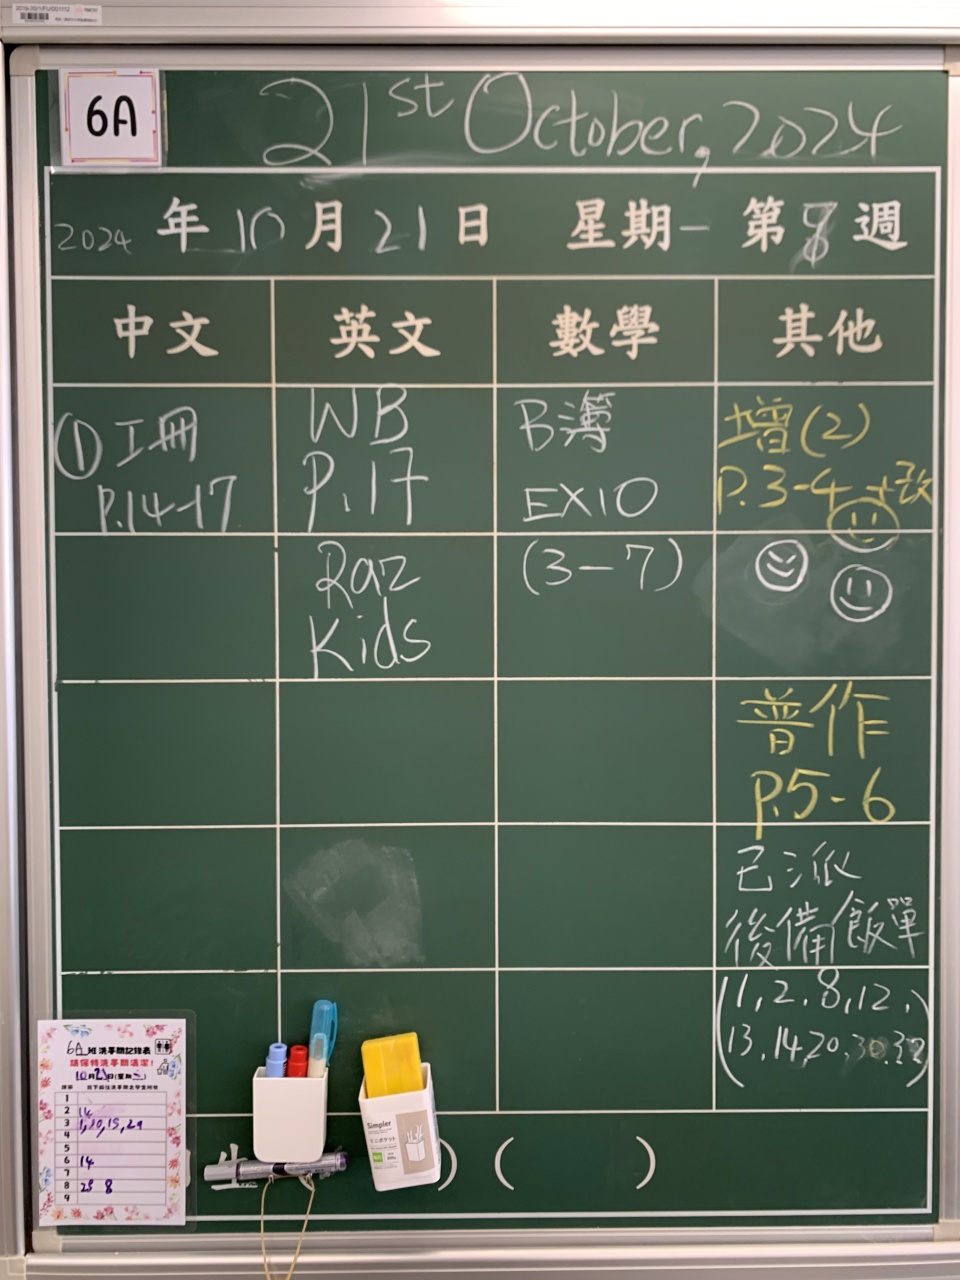 2019-20/1/FU/001112
6A
21st October, 2024
2024 年 10 月 21 日 星期一 第 8 週
中文
英文
數學
其他
①工冊
P.14-17
WB
P.17
Raz
Kids
B簿
EX10
(3-7)
增(2)
P.3-4+改
普作
P.5-6
已派
後備飯單
(1, 2, 8, 12,
13, 14, 20, 30, 32)
) ( )
Simpler
ミニポケット
6A 班洗手間記錄表
請保持洗手間清潔!
10月21日(星期一)
1
2 14
3 1, 20, 15, 29
4
5
6 14
7
8 25 8
9